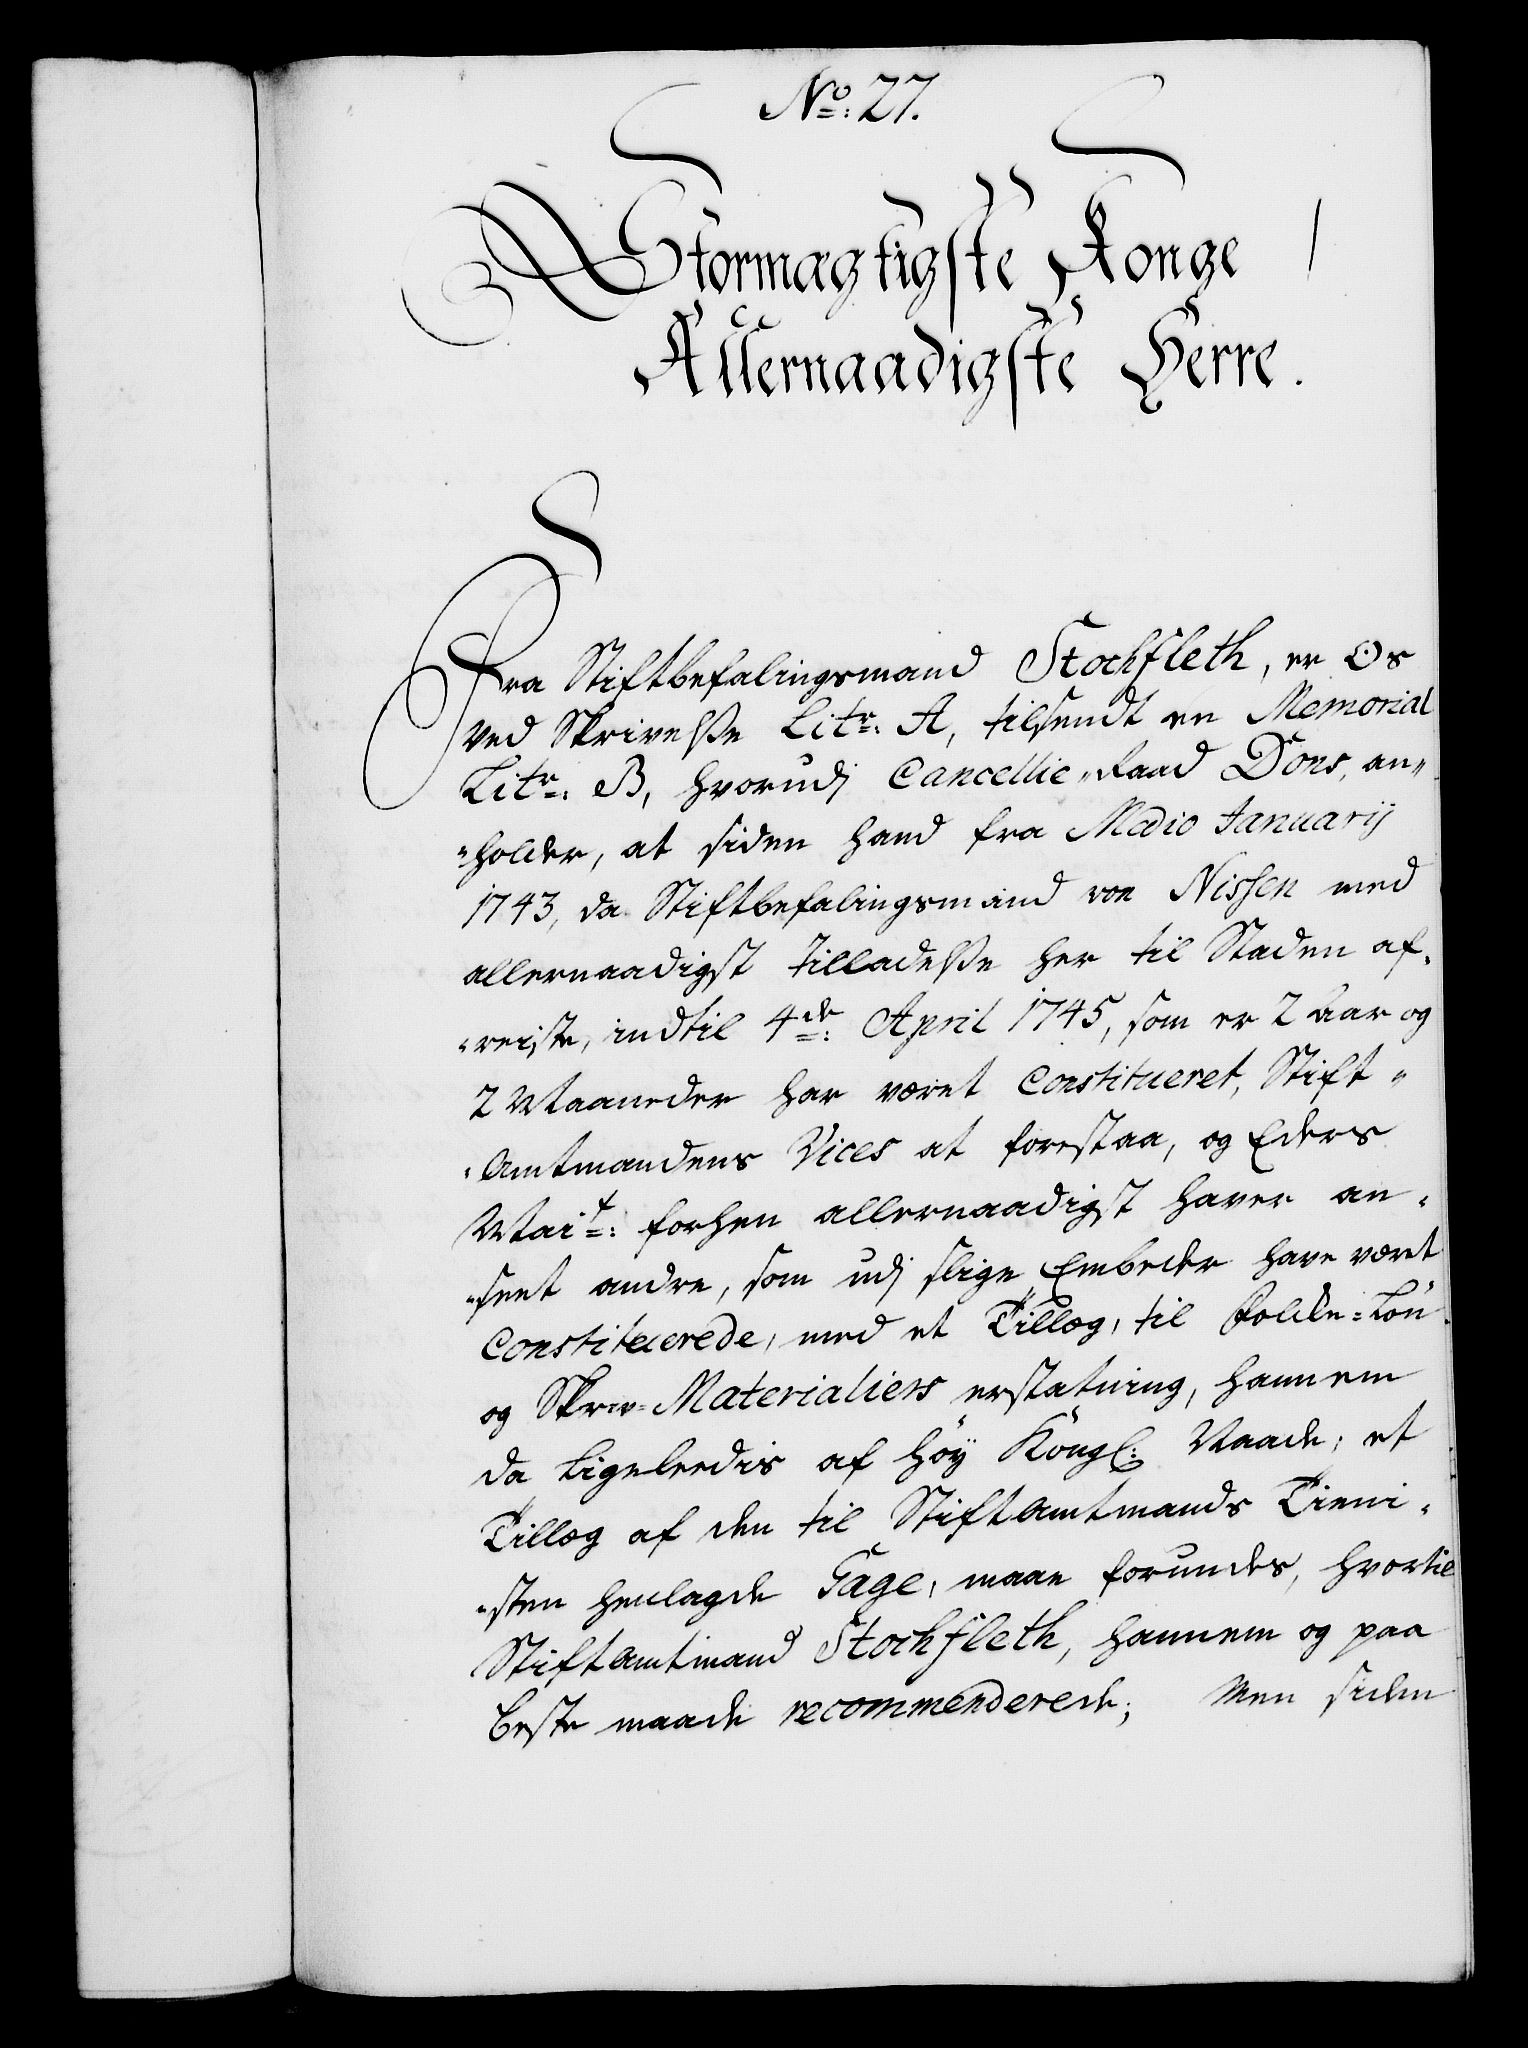 No: 27.
Stormægtigste Konge
Allernaadigste Herre.
Fra Stiftbefalingsmand Stochfleth, er Os
ved Skrivelsse Litr: A, tilsendt en Memorial
Litr: B, hvorudj Cancellie-Raad Dons, an-
-holder, at siden hand fra Medio Januarij
1743, da Stiftbefalingsmand von Nissen med
allernaadigst Tilladelsse her til Staden af-
-reiste, indtil 4de: April 1745, som er 2 Aar og
2 Maaneder har været Constitueret, Stift-
-Amtmandens Vices at forestaa, og Eders
Mait: forhen allernaadigst haver an-
-seet andre, som udj slige Embeder have været
Constituerede, med et Tillæg, til Folke-Løn
og Skriv-Materialiers erstatning, hannem
da ligeleedis af høy Kongl: Naade, et
Tillæg af den til Stiftamtmands Tieni-
-sten henlagde Gage, maae forundes, hvortil
Stiftamtmand Stochfleth, hannem og paa
beste maade recommenderede; Men siden